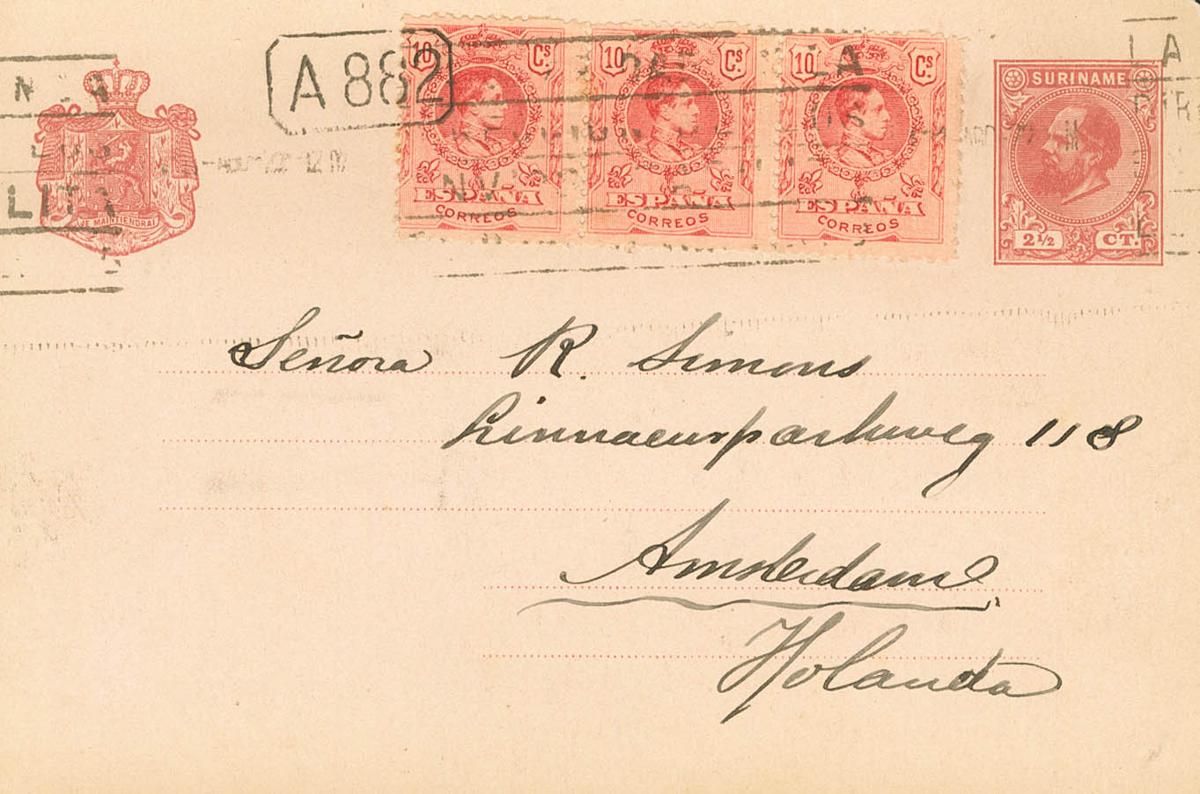 A 882
10 Cs. 10 Cs. 10 Cs.
ESPAÑA ESPAÑA ESPAÑA
CORREOS CORREOS CORREOS
SURINAME
2 1/2 CT.
JE MAINTIENDRAI
LA
Señora R. Simons
Linnaeusparkweg 118
Amsterdam
Holanda